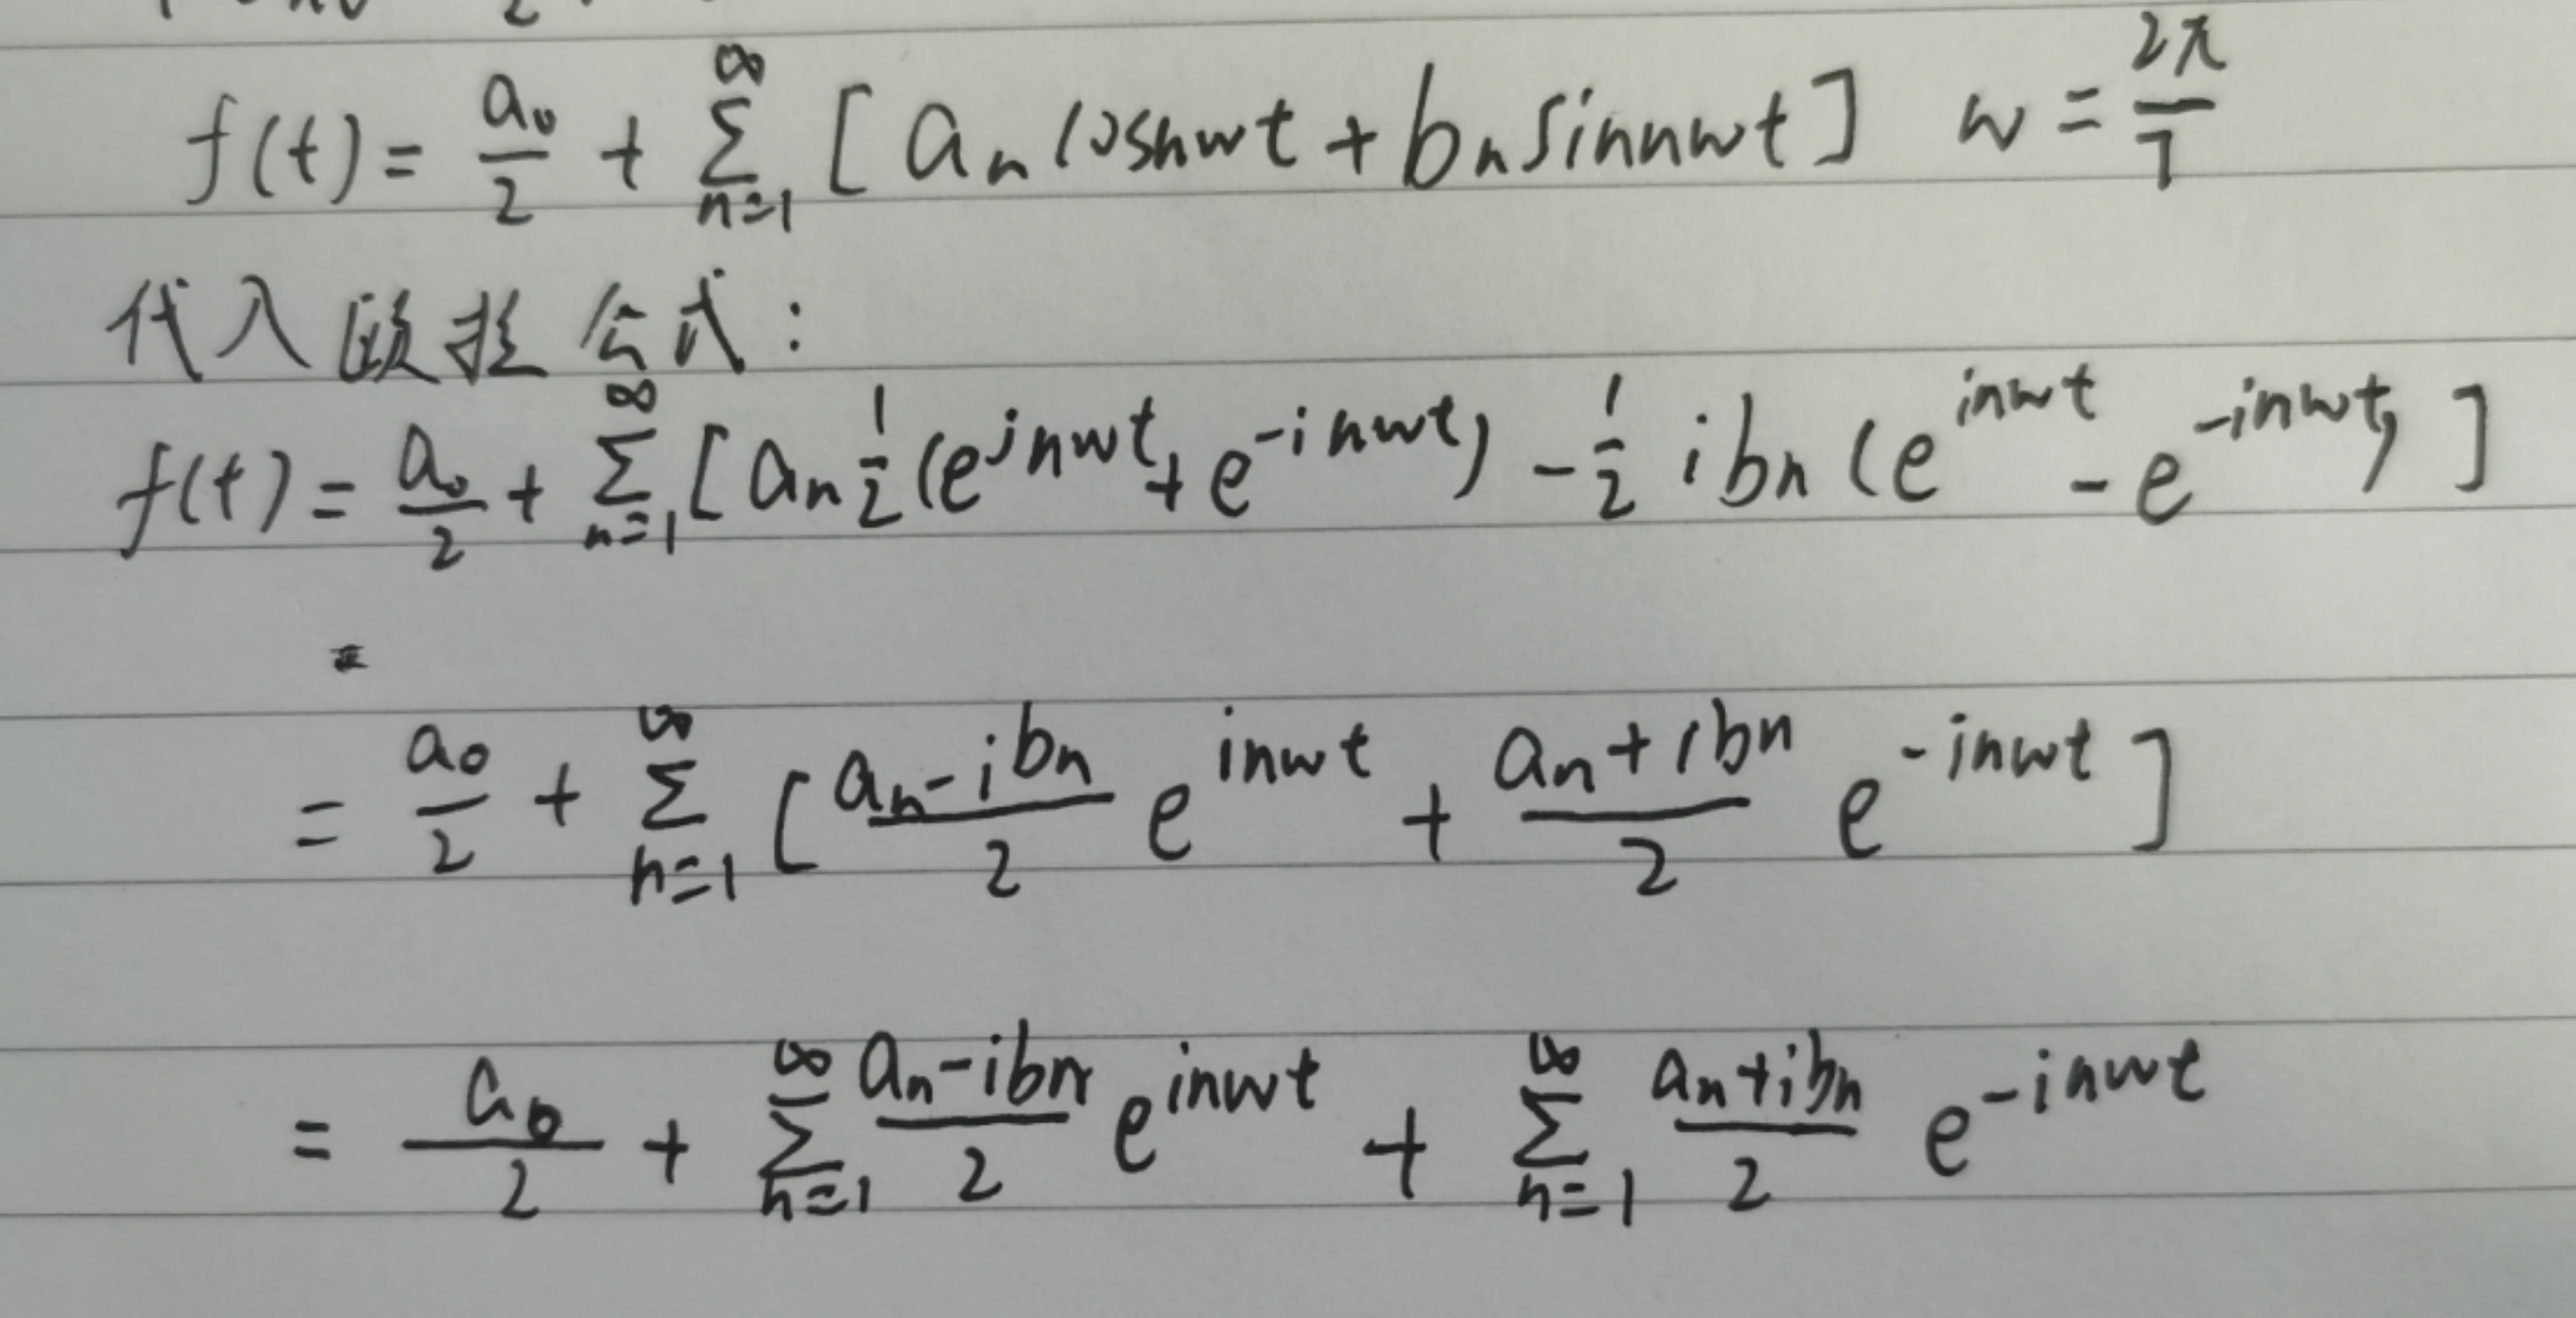 f(t) = a₀/2 + ∑_{n=1}^{∞} [ aₙ cosnwt + bₙ sinnwt ]  w = 2π/T
代入欧拉公式:
f(t) = a₀/2 + ∑_{n=1}^{∞} [ aₙ 1/2 (e^{inwt} + e^{-inwt}) - 1/2 ibₙ (e^{inwt} - e^{-inwt}) ]
= a₀/2 + ∑_{n=1}^{∞} [ (aₙ - ibₙ)/2 e^{inwt} + (aₙ + ibₙ)/2 e^{-inwt} ]
= a₀/2 + ∑_{n=1}^{∞} (aₙ - ibₙ)/2 e^{inwt} + ∑_{n=1}^{∞} (aₙ + ibₙ)/2 e^{-inwt}